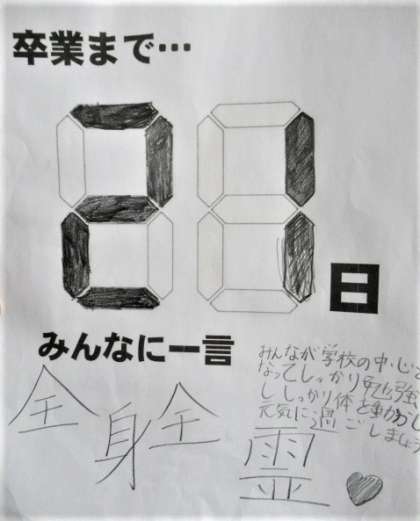 卒業まで…
21日
みんなに一言
みんなが学校の中心と
なってしっかり勉強
ししっかり体を動かし
元気に過ごしましょう
全身全霊